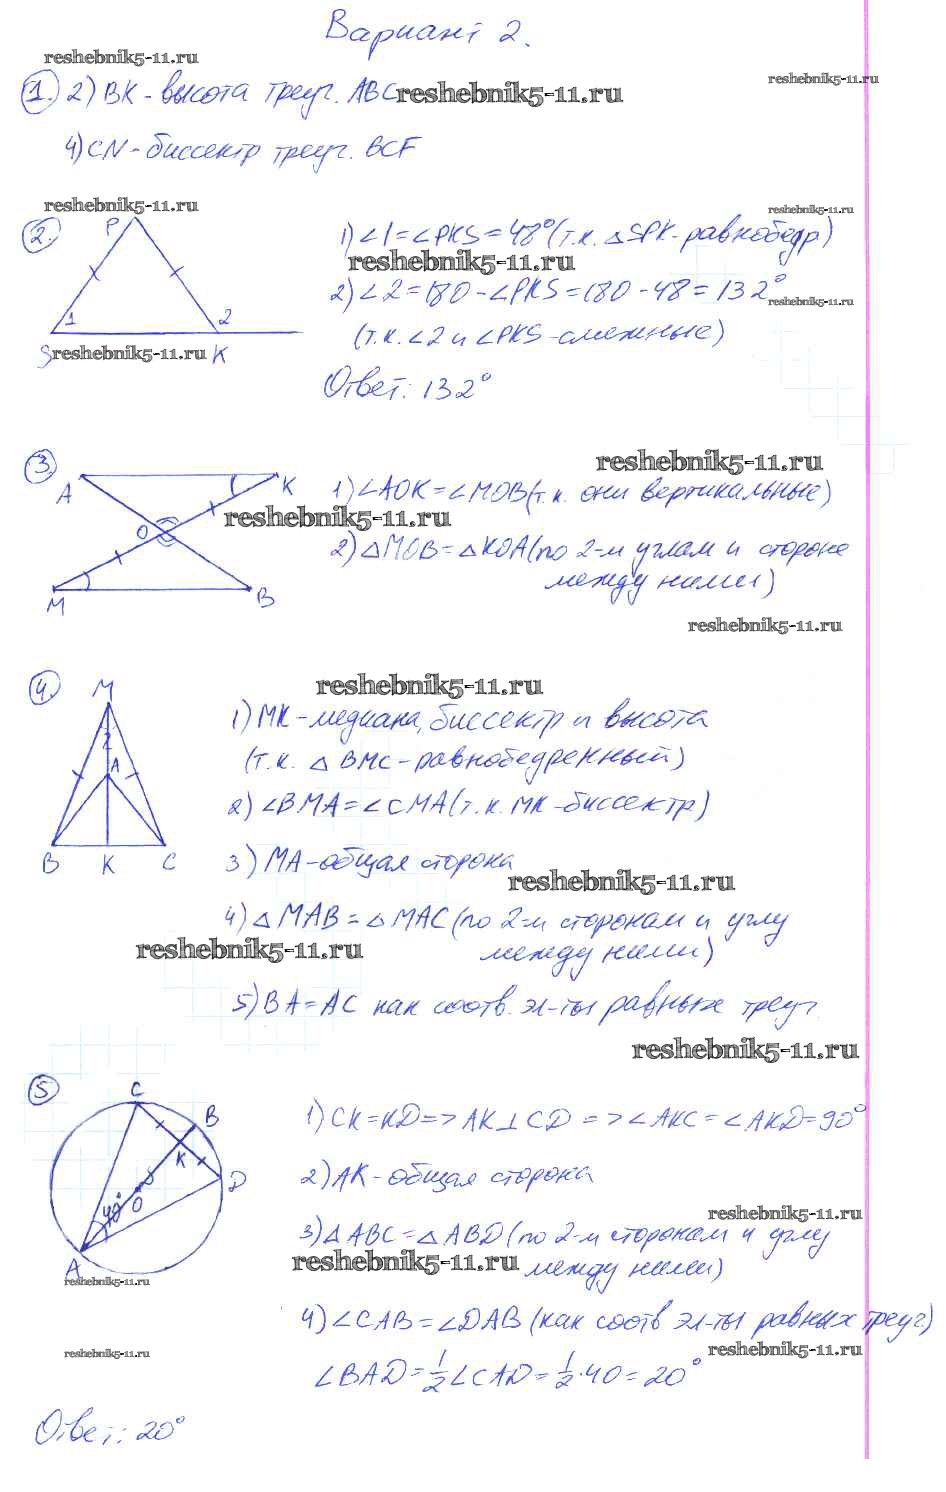 Вариант 2.
reshebnik5-11.ru
reshebnik5-11.ru
1. 2) BK - высота треуг. ABC reshebnik5-11.ru
4) CN - биссектр треуг. BCF
reshebnik5-11.ru
reshebnik5-11.ru
2.
P
1) ∠1 = ∠PKS = 48° (т.к. △SPK - равнобедр)
reshebnik5-11.ru
2) ∠2 = 180 - ∠PKS = 180 - 48 = 132°
reshebnik5-11.ru
1 2
(т.к. ∠2 и ∠PKS - смежные)
S reshebnik5-11.ru K
Ответ: 132°
3.
reshebnik5-11.ru
A K
1) ∠AOK = ∠MOB (т.к. они вертикальные)
reshebnik5-11.ru
O
2) △MOB = △KOA (по 2-м углам и стороне
между ними)
M B
reshebnik5-11.ru
4.
M
reshebnik5-11.ru
1) MK - медиана, биссектр и высота
(т.к. △BMC - равнобедренный)
A
2) ∠BMA = ∠CMA (т.к. MK - биссектр)
B K C
3) MA - общая сторона
reshebnik5-11.ru
4) △MAB = △MAC (по 2-м сторонам и углу
reshebnik5-11.ru
между ними)
5) BA = AC как соотв. эл-ты равных треуг.
reshebnik5-11.ru
5
C
B
1) CK = KD => AK ⊥ CD => ∠AKC = ∠AKD = 90°
K
D
2) AK - общая сторона
40°
O
reshebnik5-11.ru
3) △ABC = △ABD (по 2-м сторонам и углу
A
reshebnik5-11.ru
между ними)
reshebnik5-11.ru
4) ∠CAB = ∠DAB (как соотв эл-ты равных треуг)
reshebnik5-11.ru
reshebnik5-11.ru
∠BAD = 1/2 ∠CAD = 1/2 · 40 = 20°
Ответ: 20°